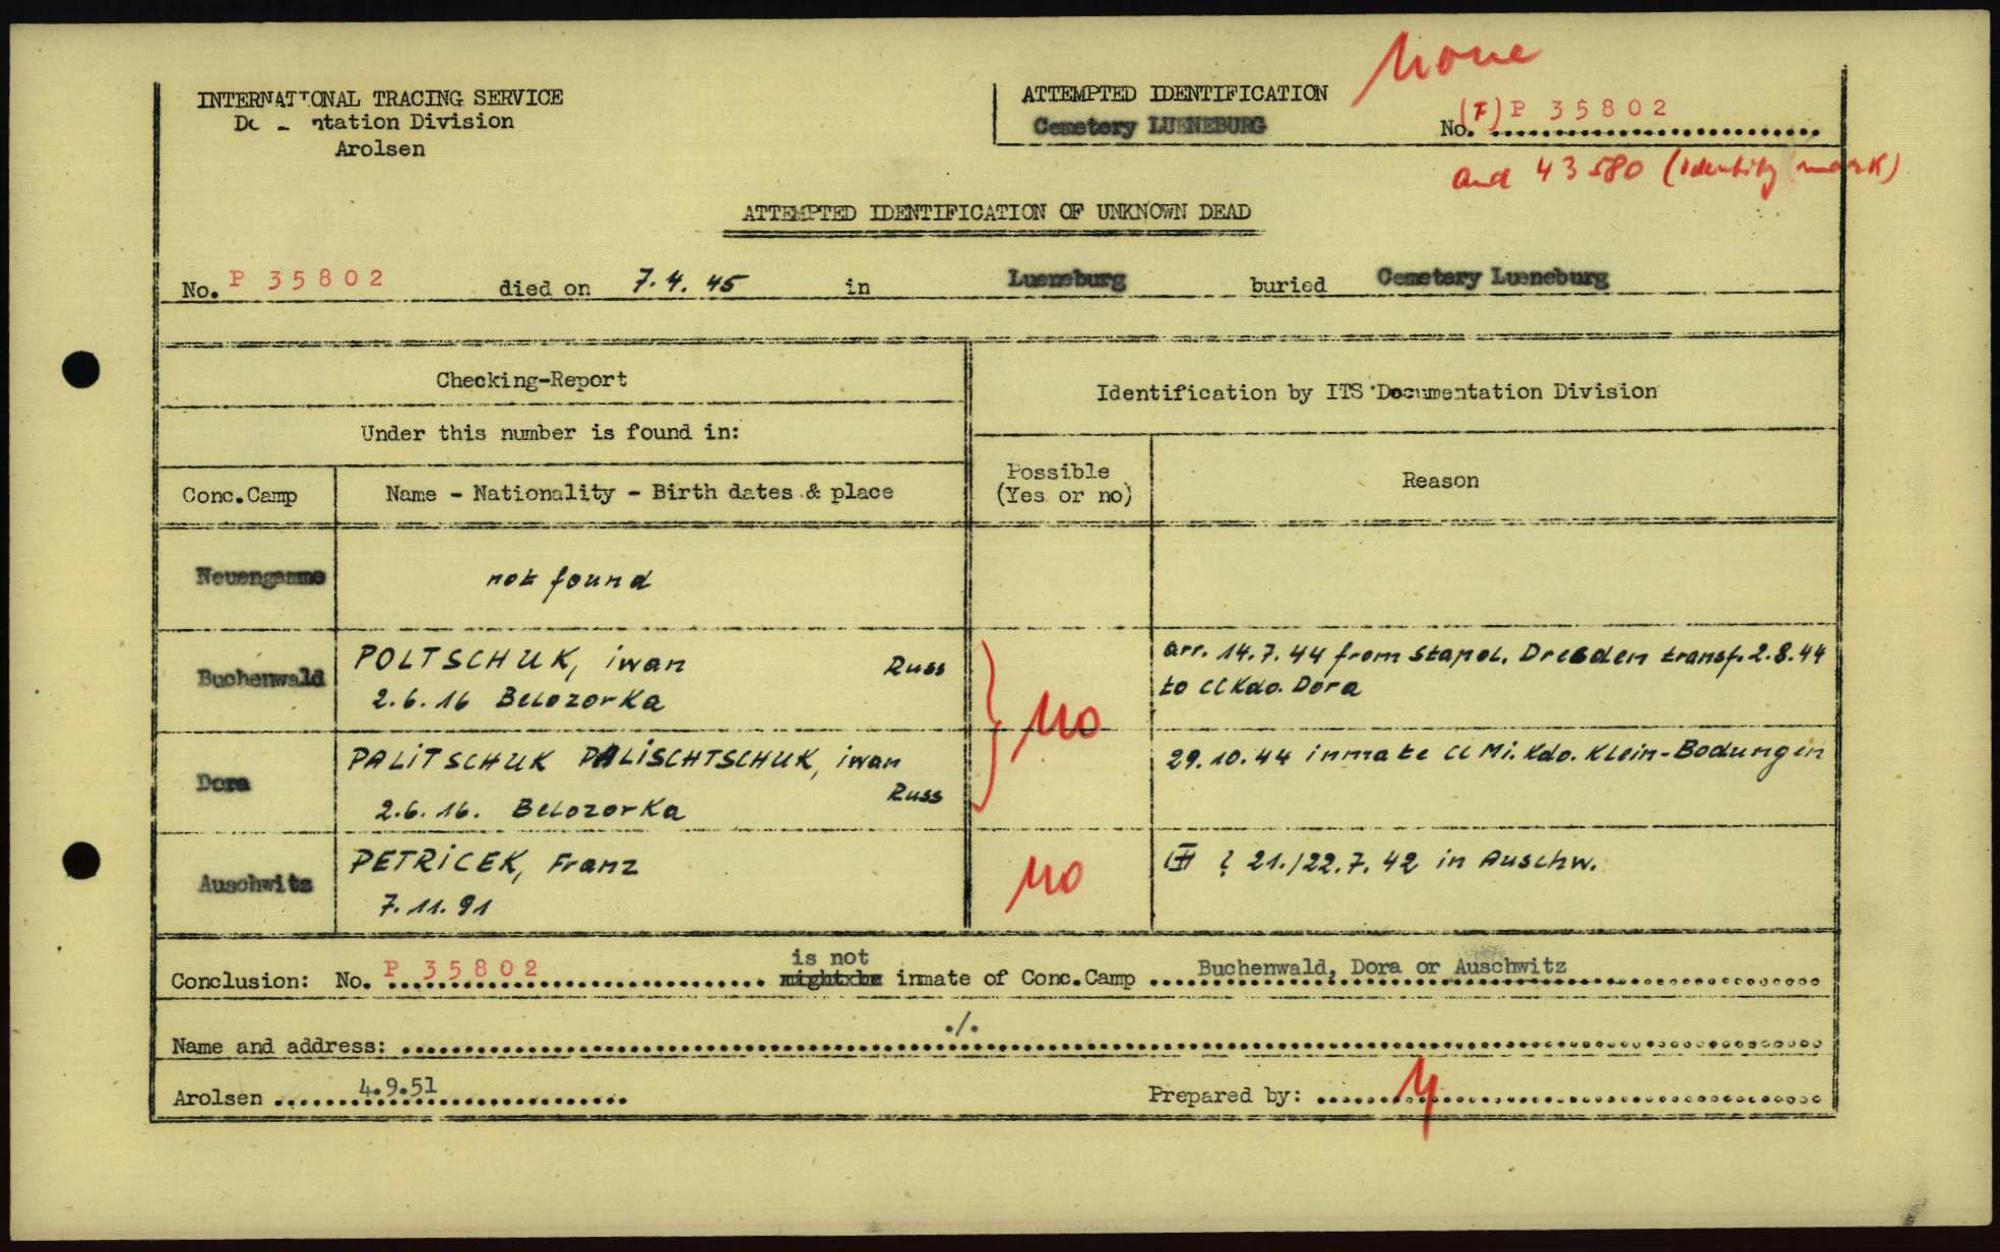 none
INTERNATIONAL TRACING SERVICE
ntation Division
Arolsen
ATTEMPTED IDENTIFICATION
Cemetery LUENEBURG
No. (T) P 35802
and 43580 (identity mark)
ATTEMPTED IDENTIFICATION OF UNKNOWN DEAD
No. P 35802 died on 7.4.45 in Lueneburg buried Cemetery Lueneburg
Checking-Report
Identification by ITS Documentation Division
Under this number is found in:
Conc.Camp
Name - Nationality - Birth dates & place
Possible
(Yes or no)
Reason
Neuengamme
not found
Buchenwald
POLTSCHUK, iwan Russ
2.6.16 Belozorka
no
arr. 14.7.44 from Stapol. Dresden transf. 2.8.44
to CC Kdo. Dora
Dora
PALITSCHUK PALISCHTSCHUK, iwan
Russ
2.6.16. Belozorka
29.10.44 inmate CC Mi. Kdo. Klein-Bodungen
Auschwitz
PETRICEK, Franz
7.11.91
no
? 21./22.7.42 in Auschw.
is not
Conclusion: No. P 35802 might be inmate of Conc.Camp Buchenwald, Dora or Auschwitz
Name and address: ./.
Arolsen 4.9.51 Prepared by: